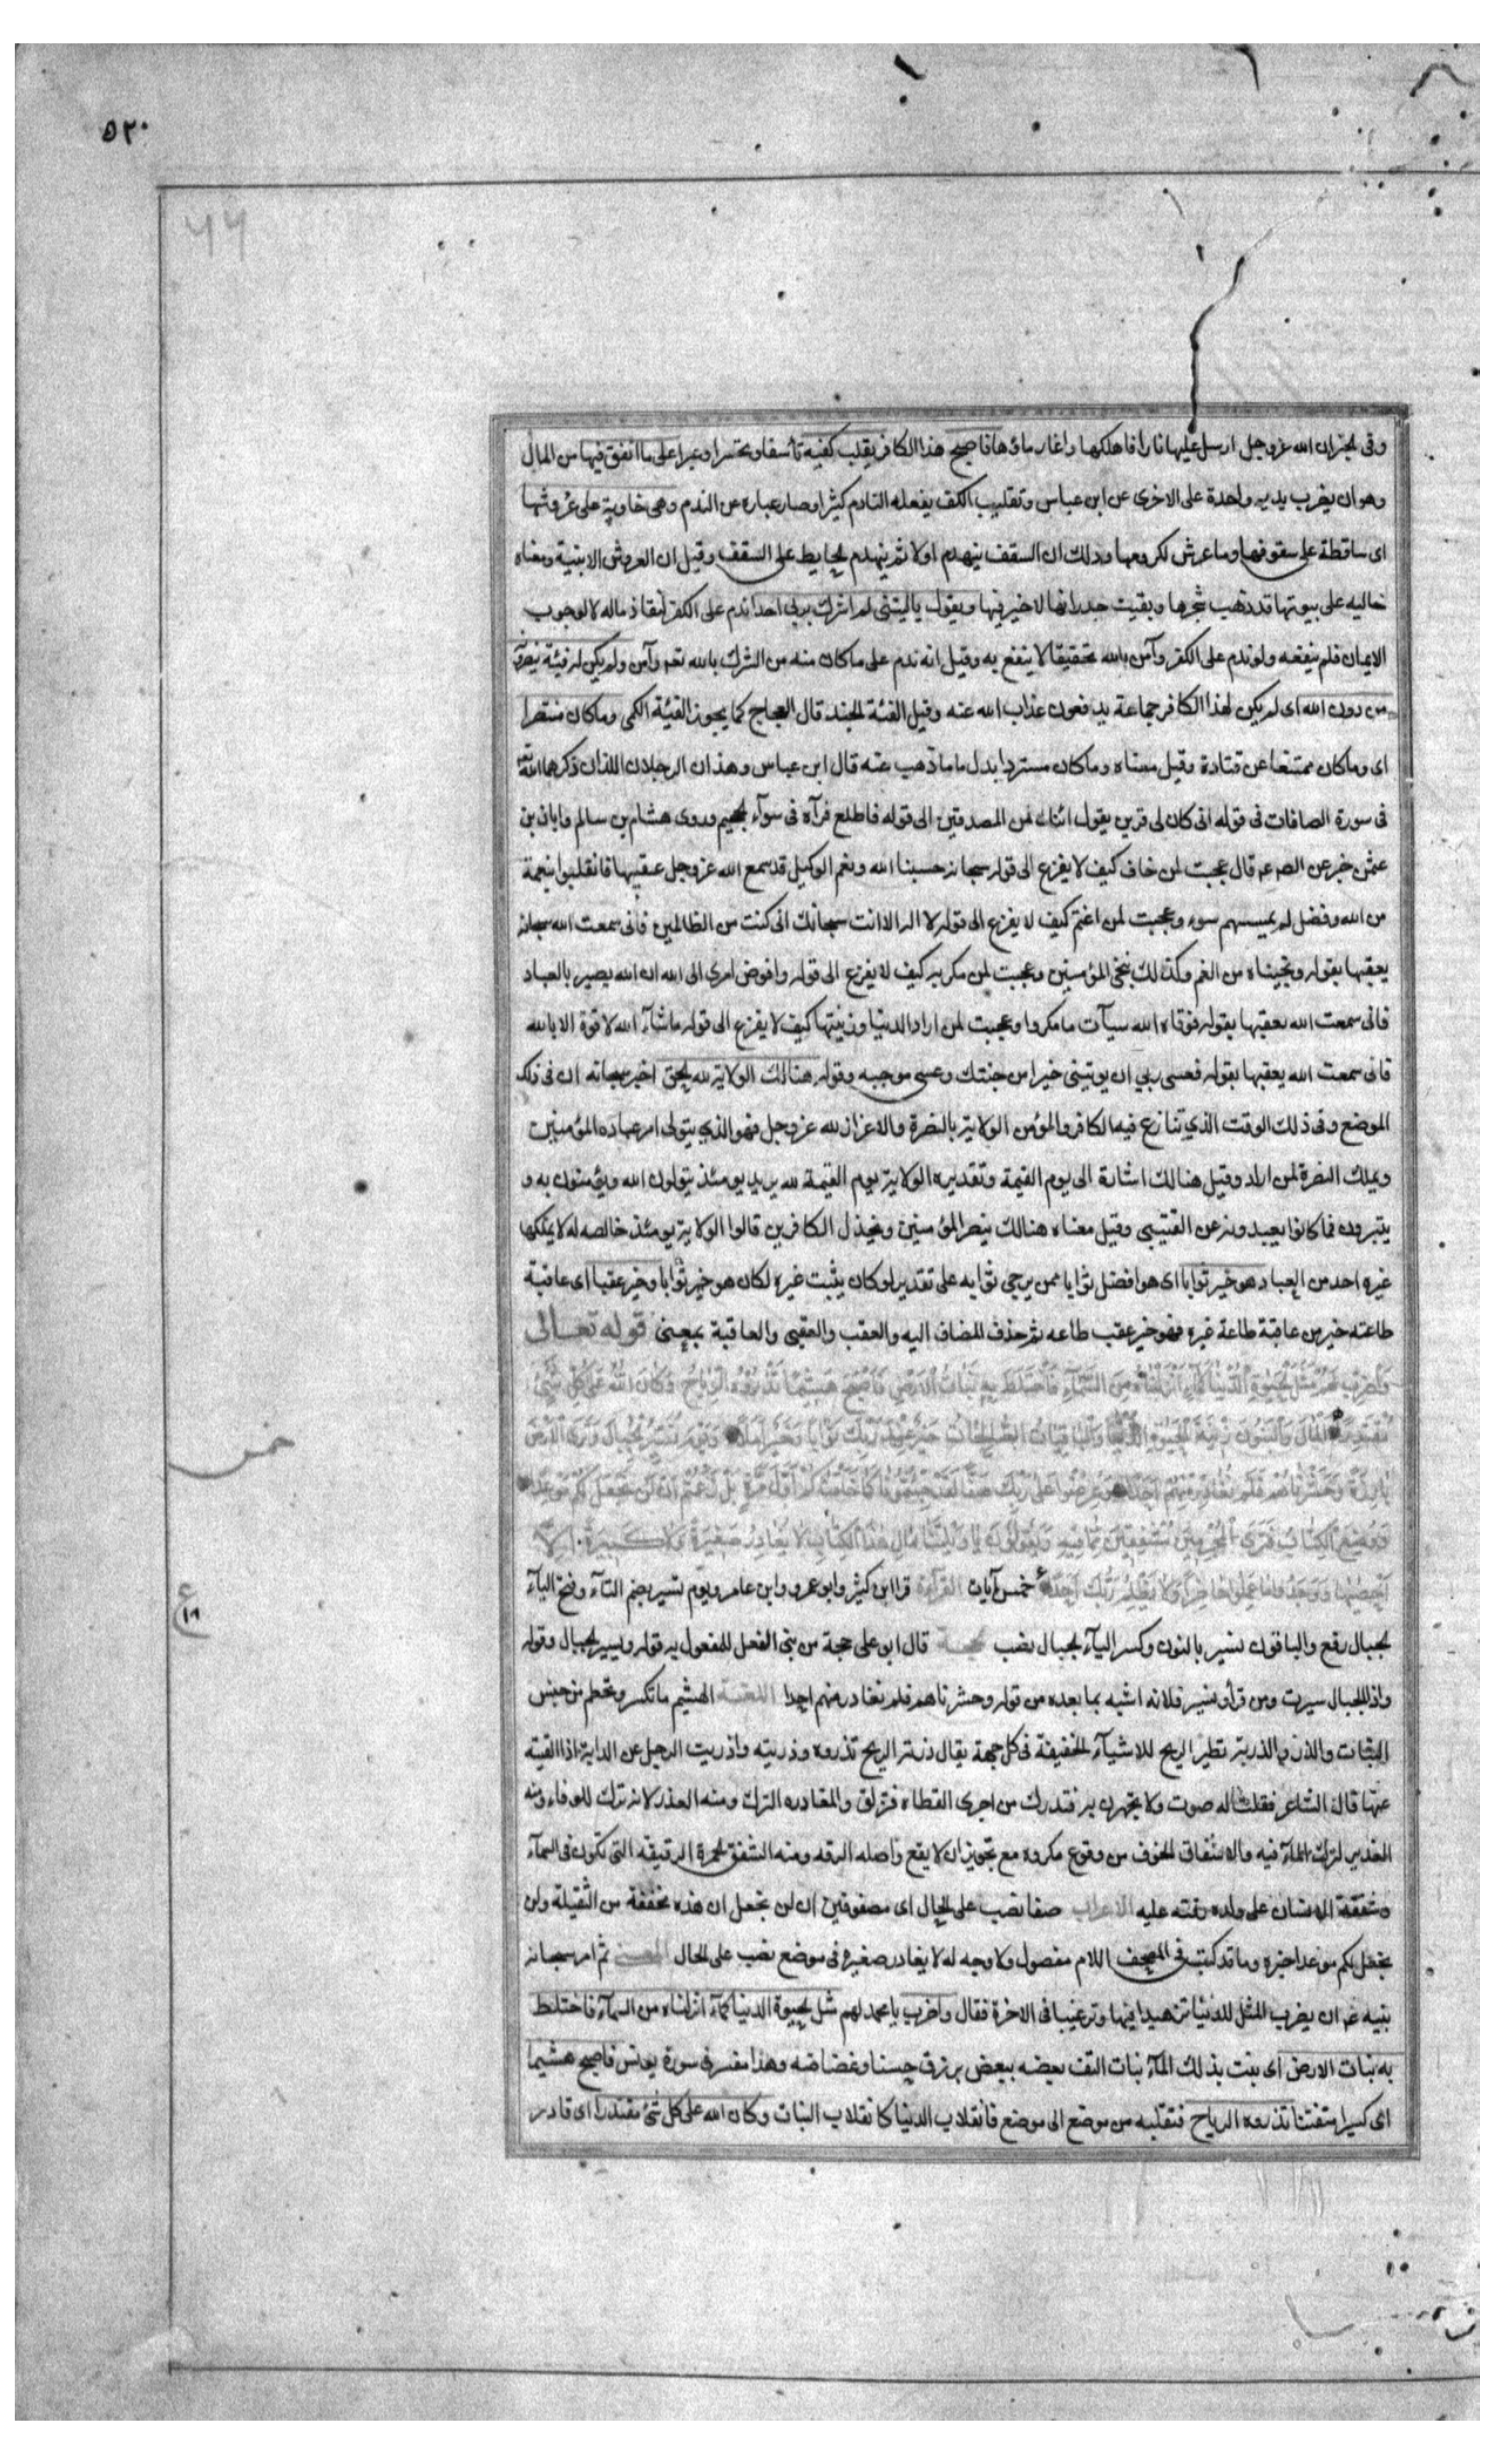 ٥٢٠
٤٤
وفى الخبران الله عزوجل ارسل عليها نارا فاهلكها واغار ماؤها فاصبح هذا الكافر يقلب كفيه تأسفا وتحسرا وعبرا على ما انفق فيها من المال
وهو ان يضرب يديه واحدة على الاخرى عن ابن عباس وتقليب الكف يفعله النادم كثيرا وصار عباره عن الندم وهى خاوية على عروشها
اى ساقطة على سقوفها وما عرش لكرومها وذلك ان السقف ينهدم اولا ثم ينهدم الحايط على السقف وقيل ان العروش الابنية ومعناه
خاليه على بيوتها قد ذهب شجرها وبقيت جدرانها لا خير فيها ويقول ياليتنى لم اشرك بربى احدا ندم على الكفر لنفاذ ماله لا لوجوب
الايمان فلم ينفعه ولو ندم على الكفر وآمن بالله تحقيقا لا ينتفع به وقيل انه ندم على ما كان منه من الشرك بالله تعم وآمن ولم يكن له فئة ينصرونه
من دون الله اى لم يكن لهذا الكافر جماعة يدفعون عذاب الله عنه وقيل الفئة الجند قال العجاج كما يجوز الفيئة الكمى وما كان منتصرا
اى وما كان ممتنعا عن قتادة وقيل معناه وما كان مستردا بدل ما ما ذهب عنه قال ابن عباس وهذان الرجلان اللذان ذكرهما الله تعم
فى سورة الصافات فى قوله انى كان لى قرين يقول ائنك لمن المصدقين الى قوله فاطلع فرآه فى سوآء الجحيم وروى هشام بن سالم وابان بن
عثمن خبر عن الصم عم قال عجبت لمن خاف كيف لا يفزع الى قوله سبحانه حسبنا الله ونعم الوكيل قد سمع الله عزوجل عقيبها فانقلبوا بنعمة
من الله وفضل لم يمسسهم سوء وعجبت لمن اغتم كيف لا يفزع الى قوله لا اله الا انت سبحانك انى كنت من الظالمين فانى سمعت الله سبحانه
يعقبها بقوله ونجيناه من الغم وكذلك ننجى المؤمنين وعجبت لمن مكر به كيف لا يفزع الى قوله وافوض امرى الى الله ان الله بصير بالعباد
فانى سمعت الله يعقبها بقوله فوقاه الله سيآت ما مكروا وعجبت لمن اراد الدنيا وزينتها كيف لا يفزع الى قوله ماشآء الله لا قوة الا بالله
فانى سمعت الله يعقبها بقوله فعسى ربى ان يوتينى خيرا من جنتك وعسى موجبه وقوله هنالك الولاية لله الحق اخبر سبحانه ان فى ذلك
الموضع وفى ذلك الوقت الذي تنازع فيه الكافر والمؤمن الولاية بالنصرة والاعزاز لله عزوجل فهو الذي يتولى امر عباده المؤمنين
ويملك النصرة لمن اراد وقيل هنالك اشارة الى يوم القيمة وتقديره الولاية يوم القيمة لله يريد يومئذ يتولون الله ويؤمنون به و
يتبرون مما كانوا يعبدونه عن القتيبى وقيل معناه هنالك ينصر المؤمنين ويخذل الكافرين قالوا الولاية يومئذ خالصه له لا يملكها
غيره احد من العباد هو خير ثوابا اى هو افضل ثوابا ممن يرجى ثوابه على تقدير لو كان يثبت غيره لكان هو خير ثوابا وخير عقبا اى عاقبة
طاعته خير من عاقبة طاعة غيره فهو خير عقب طاعه ثم حذف المضاف اليه والعقب والعقبى والعاقبة بمعنى قوله تعالى
وَاضْرِبْ لَهُمْ مَثَلَ الْحَيٰوةِ الدُّنْيَا كَمَآءٍ اَنْزَلْنَاهُ مِنَ السَّمَآءِ فَاخْتَلَطَ بِهِ نَبَاتُ الْاَرْضِ فَاَصْبَحَ هَشِيمًا تَذْرُوهُ الرِّيَاحُ وَكَانَ اللّٰهُ عَلٰى كُلِّ شَىْءٍ
مُقْتَدِرًا اَلْمَالُ وَالْبَنُونَ زِينَةُ الْحَيٰوةِ الدُّنْيَا وَالْبَاقِيَاتُ الصَّالِحَاتُ خَيْرٌ عِنْدَ رَبِّكَ ثَوَابًا وَخَيْرٌ اَمَلًا وَيَوْمَ نُسَيِّرُ الْجِبَالَ وَتَرَى الْاَرْضَ
بَارِزَةً وَحَشَرْنَاهُمْ فَلَمْ نُغَادِرْ مِنْهُمْ اَحَدًا وَعُرِضُوا عَلٰى رَبِّكَ صَفًّا لَقَدْ جِئْتُمُونَا كَمَا خَلَقْنَاكُمْ اَوَّلَ مَرَّةٍ بَلْ زَعَمْتُمْ اَنْ لَنْ نَجْعَلَ لَكُمْ مَوْعِدًا
وَوُضِعَ الْكِتَابُ فَتَرَى الْمُجْرِمِينَ مُشْفِقِينَ مِمَّا فِيهِ وَيَقُولُونَ يَا وَيْلَتَنَا مَالِ هٰذَا الْكِتَابِ لَا يُغَادِرُ صَغِيرَةً وَلَا كَبِيرَةً اِلَّا
خمس
اَحْصٰيهَا وَوَجَدُوا مَا عَمِلُوا حَاضِرًا وَلَا يَظْلِمُ رَبُّكَ اَحَدًا خمس آيات القرآءة قرا ابن كثير وابو عمرو وابن عامر ويوم تسير بضم التآء وفتح اليآء
ع ١٨
الجبال رفع والباقون نسير بالنون وكسر اليآء الجبال نصب الحجة قال ابو على حجة من بنى الفعل للمفعول به قوله وسيرت الجبال وقوله
واذا الجبال سيرت ومن قرأ نسير فلانه اشبه بما بعده من قوله وحشرناهم فلم نغادر منهم احدا اللغة الهشيم ما تكسر وتحطم من يبس
النبات والذرو والذرية تطير الريح للاشيآء الخفيفة فى كل جهة يقال ذرته الريح تذروه وذريته واذريت الرجل عن الدابة اذا القيته
عنها قال الشاعر فقلت له صوت ولا تجهدن به فتدرك من اخرى القطاة فتزلق والمغادره الترك ومنه الغدر لانه ترك للوفاء ومنه
الغدير لترك المآء فيه والاشفاق الخوف من وقوع مكروه مع تجويز ان لا يقع واصله الرقه ومنه الشفق الحمرة الرقيقه التى تكون فى السمآء
وشفقة الانسان على ولده رقته عليه الاعراب صفا نصب على الحال اى مصفوفين ان لن نجعل ان هذه مخففة من الثقيلة ولن
نجعل لكم موعدا خبره وما قد كتب فى المصحف اللام مفصول ولا وجه له لا يغادر صغيره فى موضع نصب على الحال المعنى ثم امر سبحانه
نبيه عم ان يضرب المثل للدنيا تزهيدا فيها وترغيبا فى الاخرة فقال واضرب يا محمد لهم مثل الحيوة الدنيا كمآء انزلناه من السمآء فاختلط
به نبات الارض اى نبت بذلك المآء نبات التف بعضه ببعض يروق حسنا وغضاضه وهذا مفسر فى سورة يونس فاصبح هشيما
اى كسيرا متفتتا تذروه الرياح فتقلبه من موضع الى موضع فانقلاب الدنيا كانقلاب النبات وكان الله على كل شئ مقتدرا اى قادر